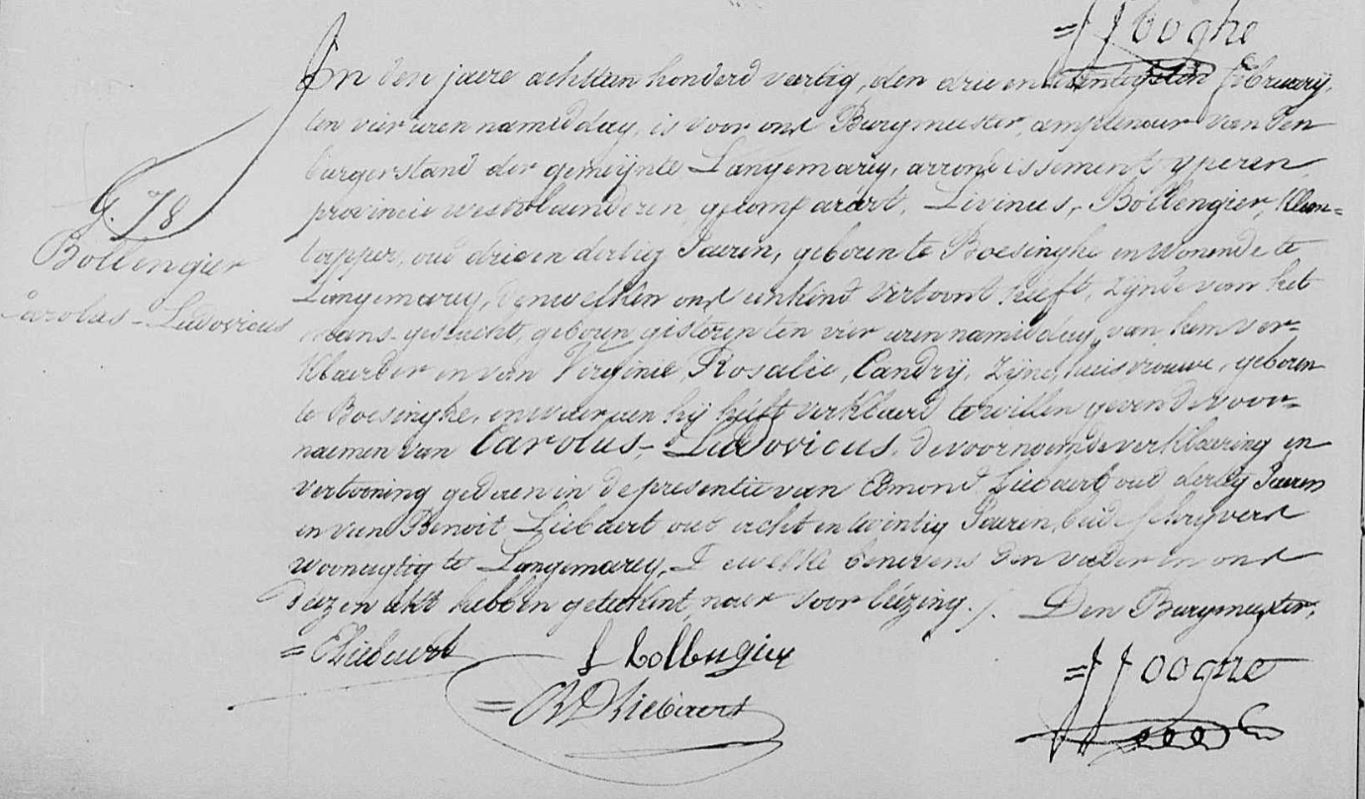 =JJ Hooghe
In den jaere achttien honderd veertig, den drie en twintigsten february,
ten vier uren namiddag, is voor ons Burgmeester, amptenaer van den
burgerstand der gemeijnte Langemarcq, arrondissement yperen
provincie westvlaenderen, gecompareert, Livinus, Bollengier,
G. 78
Bollengier
Carolus-Ludovicus
tapper, oud drie en dertig Jaeren, geboren te Boesinghe en Wonende te
Langemarcq, denwelken ons een kind vertoont heeft, zijnde van het
mans-geslacht, geboren gisteren ten vier uren namiddag, van hem ver-
klaerder en van Virginie, Rosalie, Candrÿ, zijne huisvrouwe, geboren
te Boesinghe, en waer aen hij heeft verklaerd te willen geven de voor-
naemen van Carolus,-Ludovicus. de voornoemde verklaering en
vertooning gedaen in de presentie van Edmond Liebaert oud dertig Jaeren
en van Benoit Liebaert oud acht en twintig Jaeren, beide schryvers
woonagtig te Langemarcq, Dewelke benevens den vader en ons
dezen akt hebben geteekent, naer voorlézing./. Den Burgmeester,
=E Liebaert
L Bollengier
=JJ Hooghe
=BD Liebaert